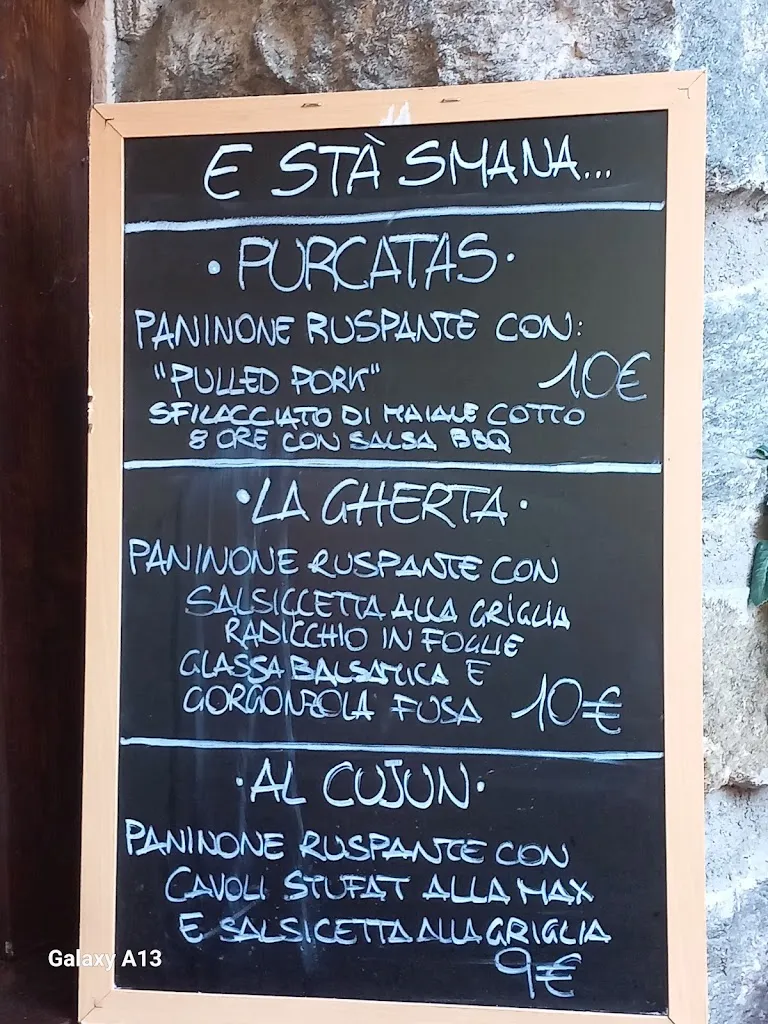 E STÀ SMANA...
·PURCATAS·
PANINONE RUSPANTE CON:
"PULLED PORK" 10€
SFILACCIATO DI MAIALE COTTO
8 ORE CON SALSA BBQ
·LA GHERTA·
PANINONE RUSPANTE CON
SALSICCETTA ALLA GRIGLIA
RADICCHIO IN FOGLIE
GLASSA BALSAMICA E
GORGONZOLA FUSA 10€
·AL CUJUN·
PANINONE RUSPANTE CON
CAVOLI STUFAT ALLA MAX
E SALSICETTA ALLA GRIGLIA
9€
Galaxy A13